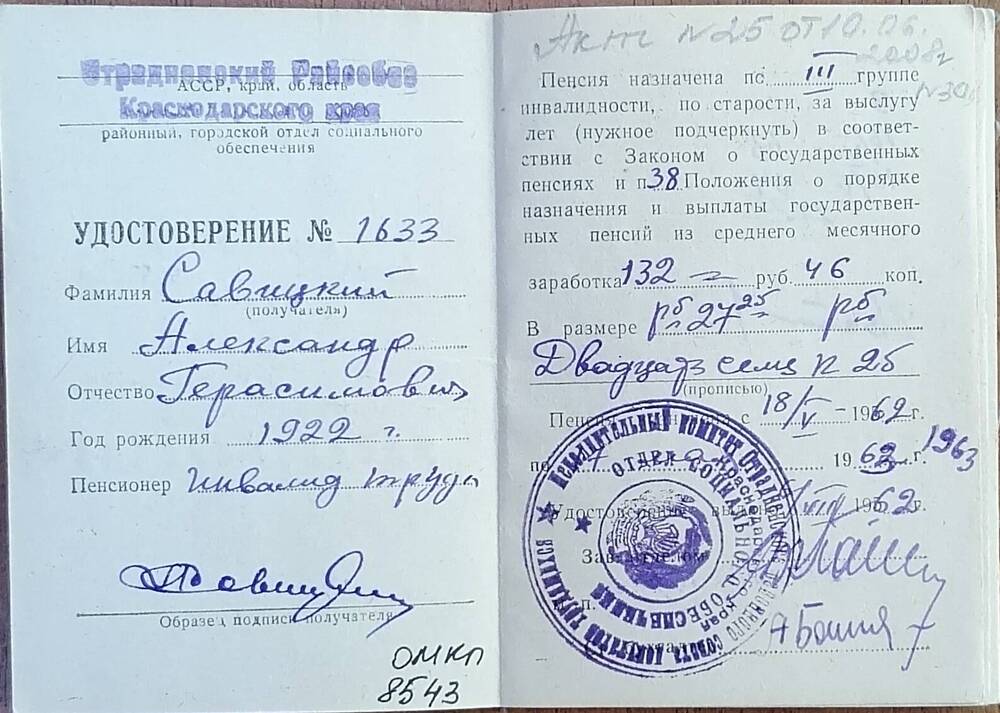 Отрадненский Райсобес
АССР, край, область
Краснодарского края
районный, городской отдел социального
обеспечения
УДОСТОВЕРЕНИЕ № 1633
Фамилия Савицкий
(получателя)
Имя Александр
Отчество Герасимович
Год рождения 1922 г.
Пенсионер Инвалид труда
Образец подписи получателя
ОМКП
8543
Акт №25 от 10.06.
2008г
Пенсия назначена по III группе
инвалидности, по старости, за выслугу
лет (нужное подчеркнуть) в соответ-
ствии с Законом о государственных
пенсиях и п 38 Положения о порядке
назначения и выплаты государствен-
ных пенсий из среднего месячного
заработка 132 руб. 46 коп.
В размере рб 27 25 рб
Двадцать семь р 25
(прописью)
Пенсия с 18/V 1962 г.
по 1 1963 г.
Удостоверение выдано 1962
Зав.
ИСПОЛНИТЕЛЬНЫЙ КОМИТЕТ ОТРАДНЕНСКОГО РАЙОННОГО СОВЕТА ДЕПУТАТОВ ТРУДЯЩИХСЯ
Краснодарского края
ОТДЕЛ СОЦИАЛЬНОГО ОБЕСПЕЧЕНИЯ